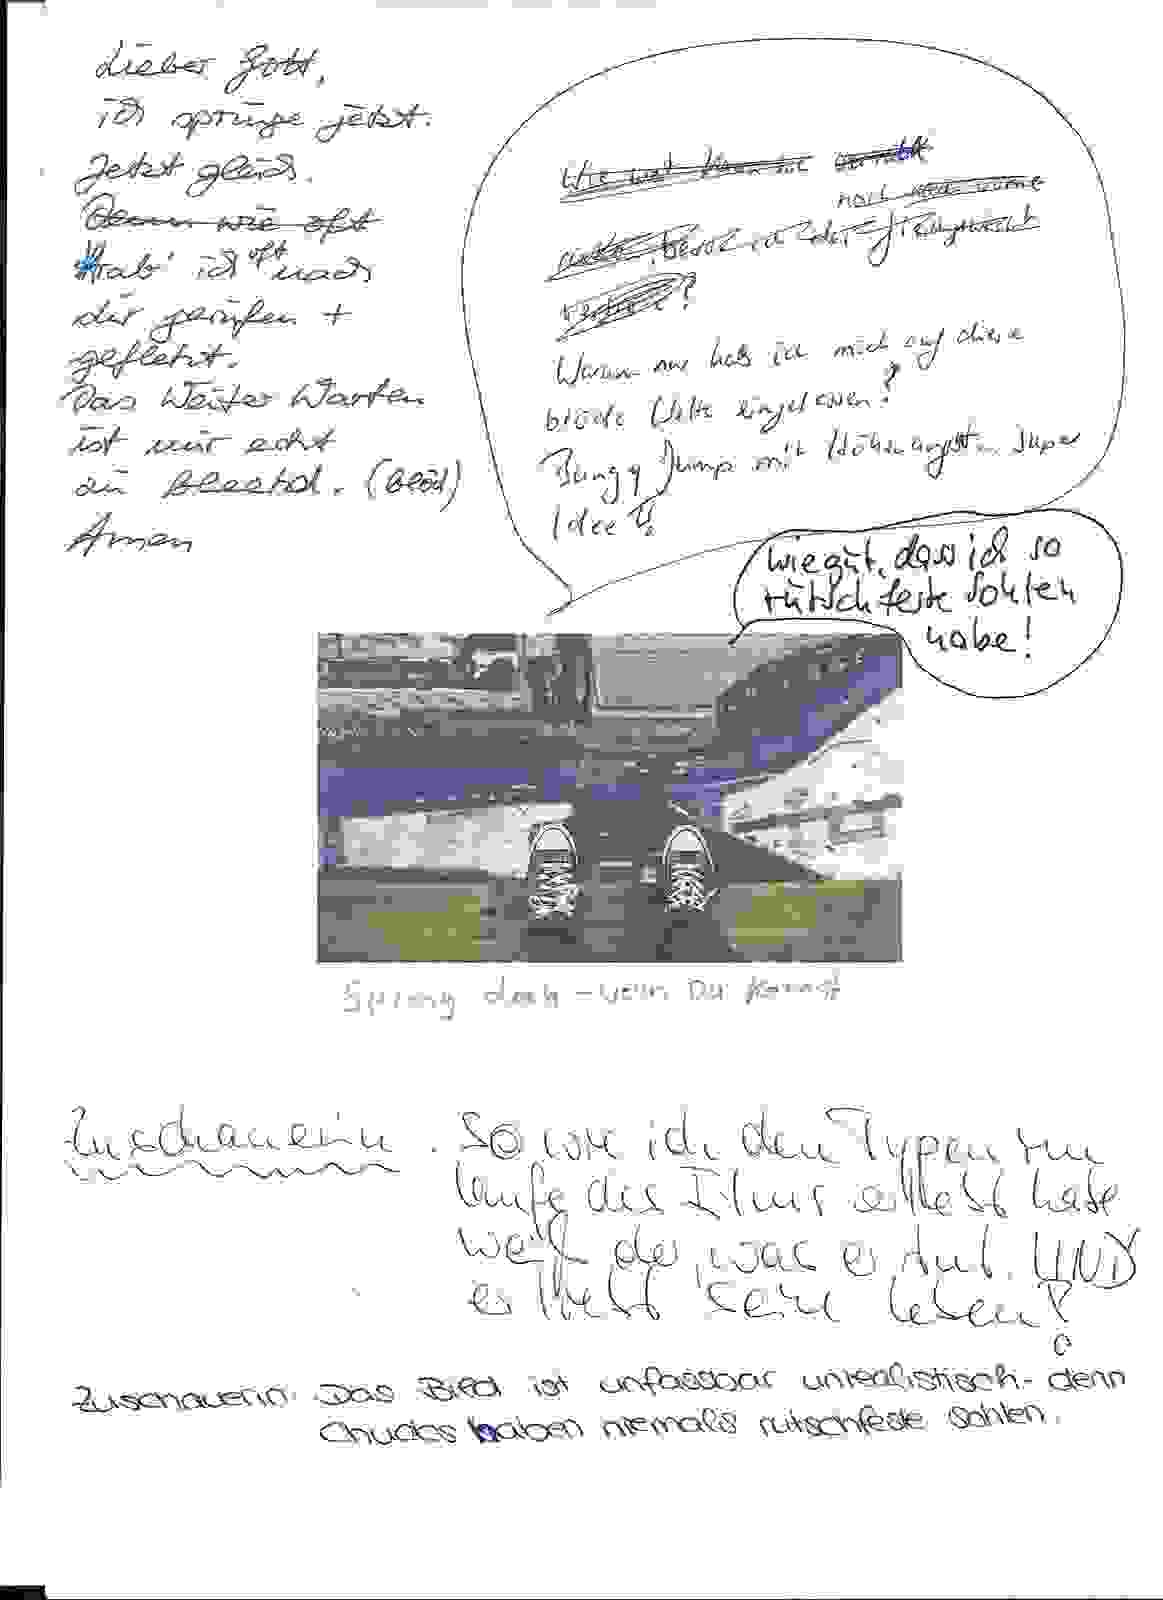 Lieber Gott,
ich springe jetzt.
Jetzt gleich.
Denn wie oft
Hab' ich oft nach
dir gerufen +
gefleht.
Das Weiter Warten
ist mir echt
zu (blöd)
Amen
Wie
noch
?
Warum nur hab ich mich auf diese
blöde Wette eingelassen?
Bungy Jump mit Höhenangst. Super
Idee
Wie gut, dass ich so
rutschfeste Sohlen
habe!
Spring doch - wenn Du kannst
Zuschauerin. So wie ich den Typen im
Laufe des Films erlebt habe
weiß der, was er tut. UND
er liebt sein Leben!
Zuschauerin: Das Bild ist unfassbar unrealistisch - denn
Chucks haben niemals rutschfeste Sohlen.